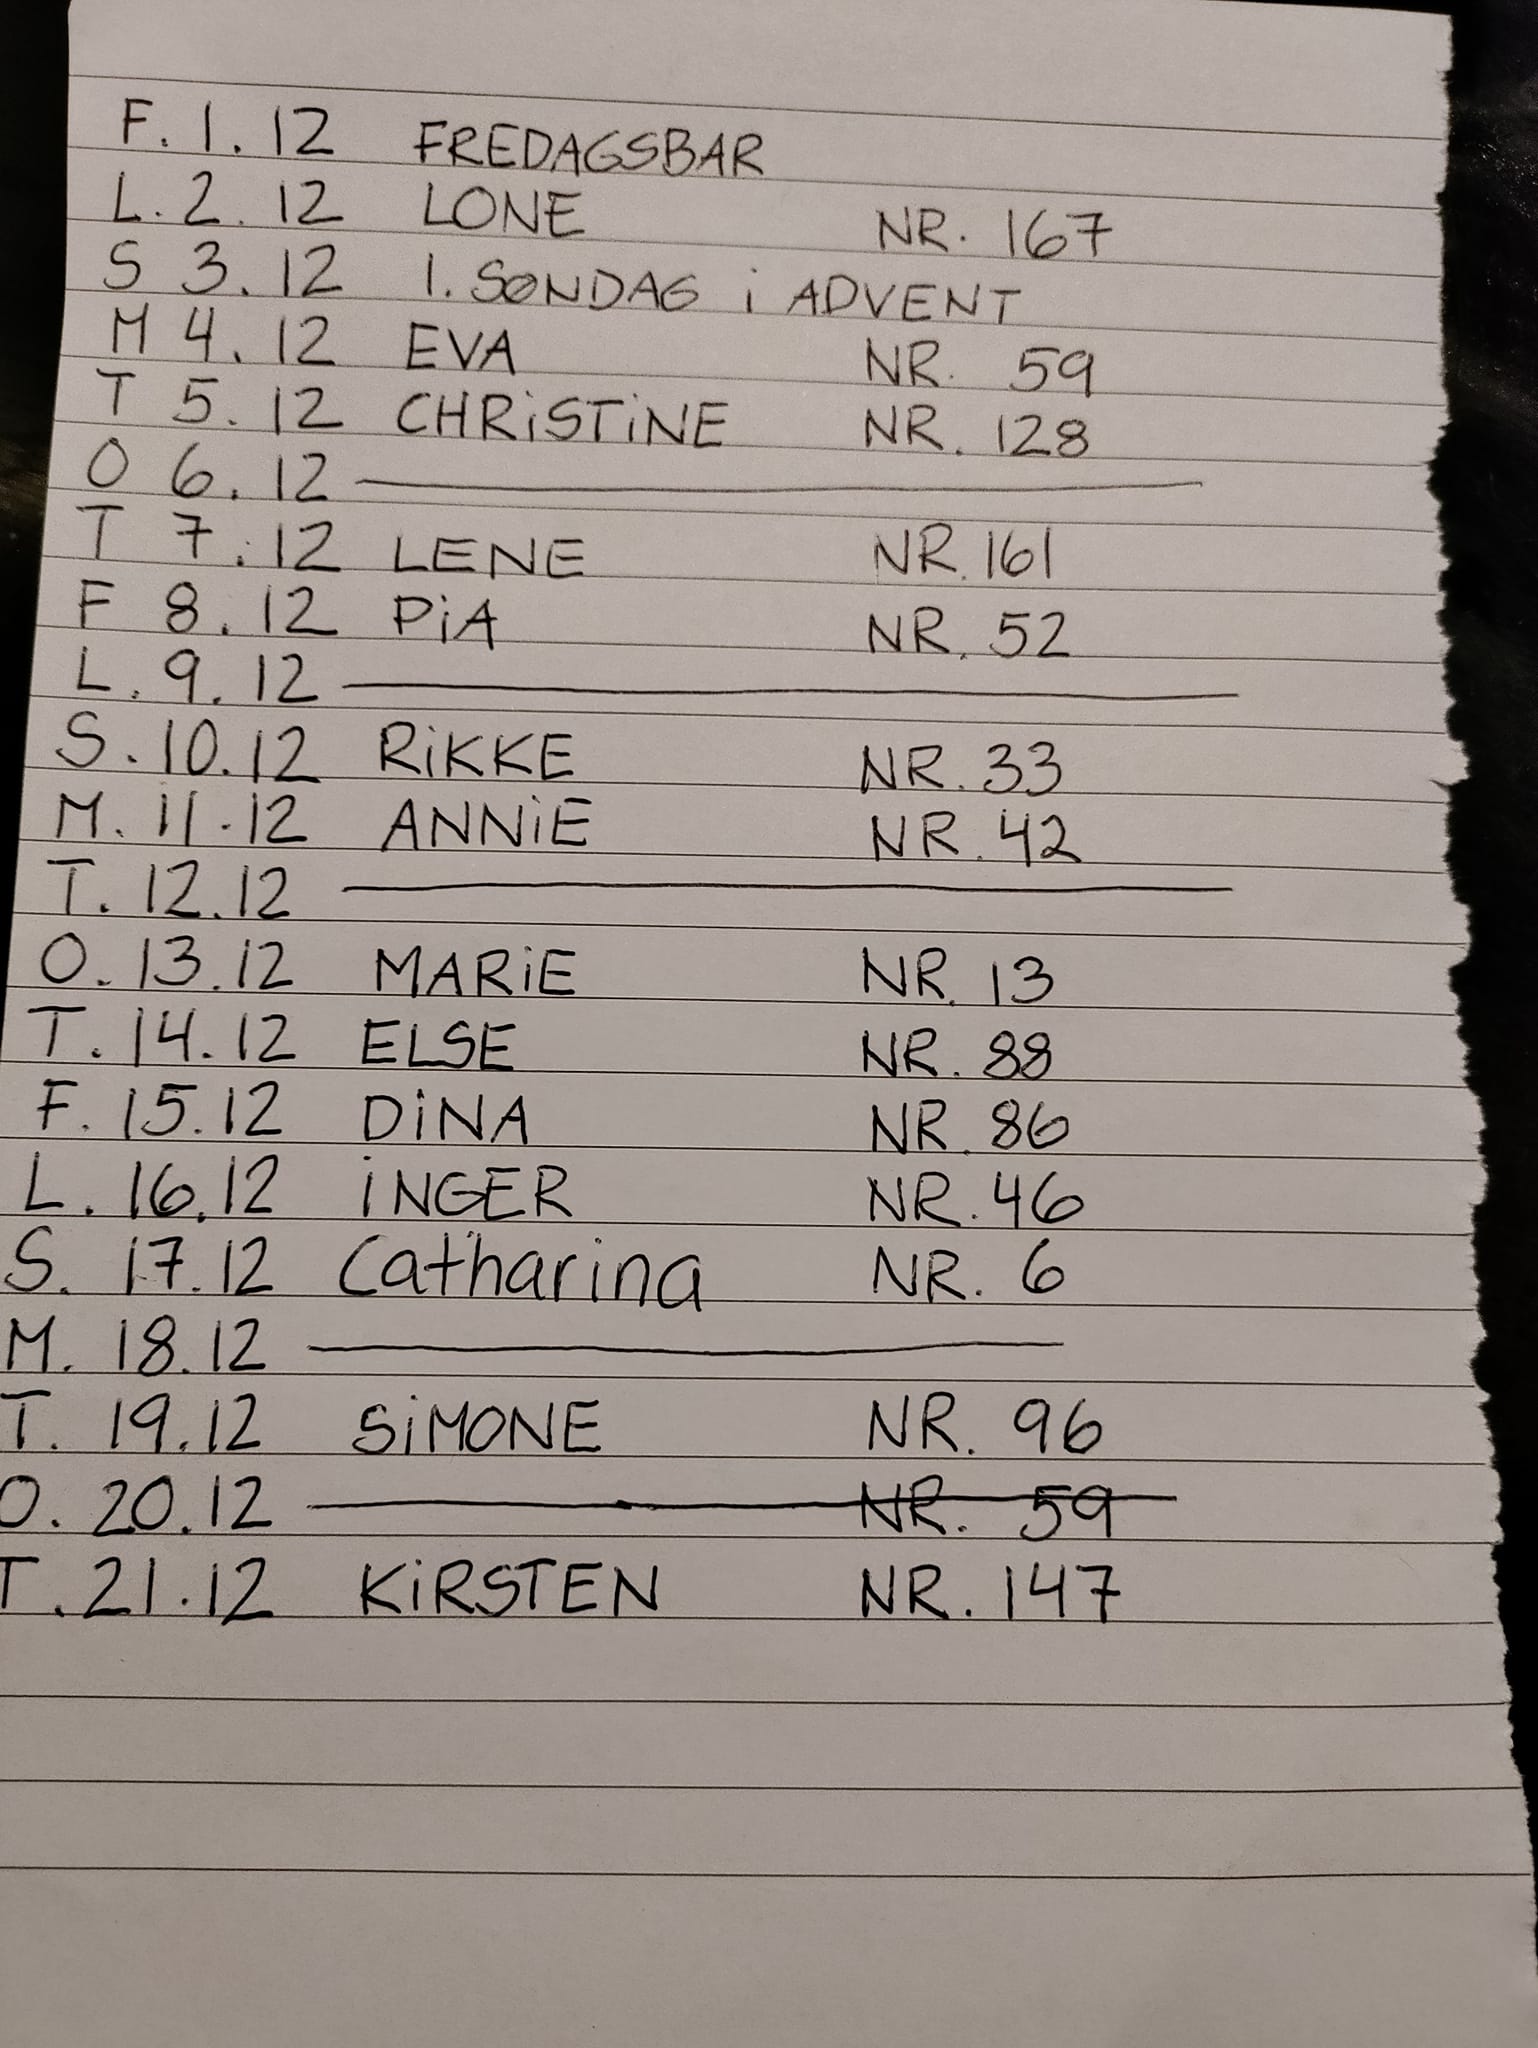 F. 1. 12 FREDAGSBAR
L. 2. 12 LONE NR. 167
S 3. 12 1. SØNDAG i ADVENT
M 4. 12 EVA NR. 59
T 5. 12 CHRiSTiNE NR. 128
O 6. 12
T 7. 12 LENE NR. 161
F 8. 12 PiA NR. 52
L. 9. 12
S. 10. 12 RiKKE NR. 33
M. 11. 12 ANNiE NR. 42
T. 12. 12
O. 13. 12 MARiE NR. 13
T. 14. 12 ELSE NR. 88
F. 15. 12 DiNA NR. 86
L. 16. 12 iNGER NR. 46
S. 17. 12 Catharina NR. 6
M. 18. 12
T. 19. 12 SiMONE NR. 96
O. 20. 12 NR. 59
T. 21. 12 KiRSTEN NR. 147